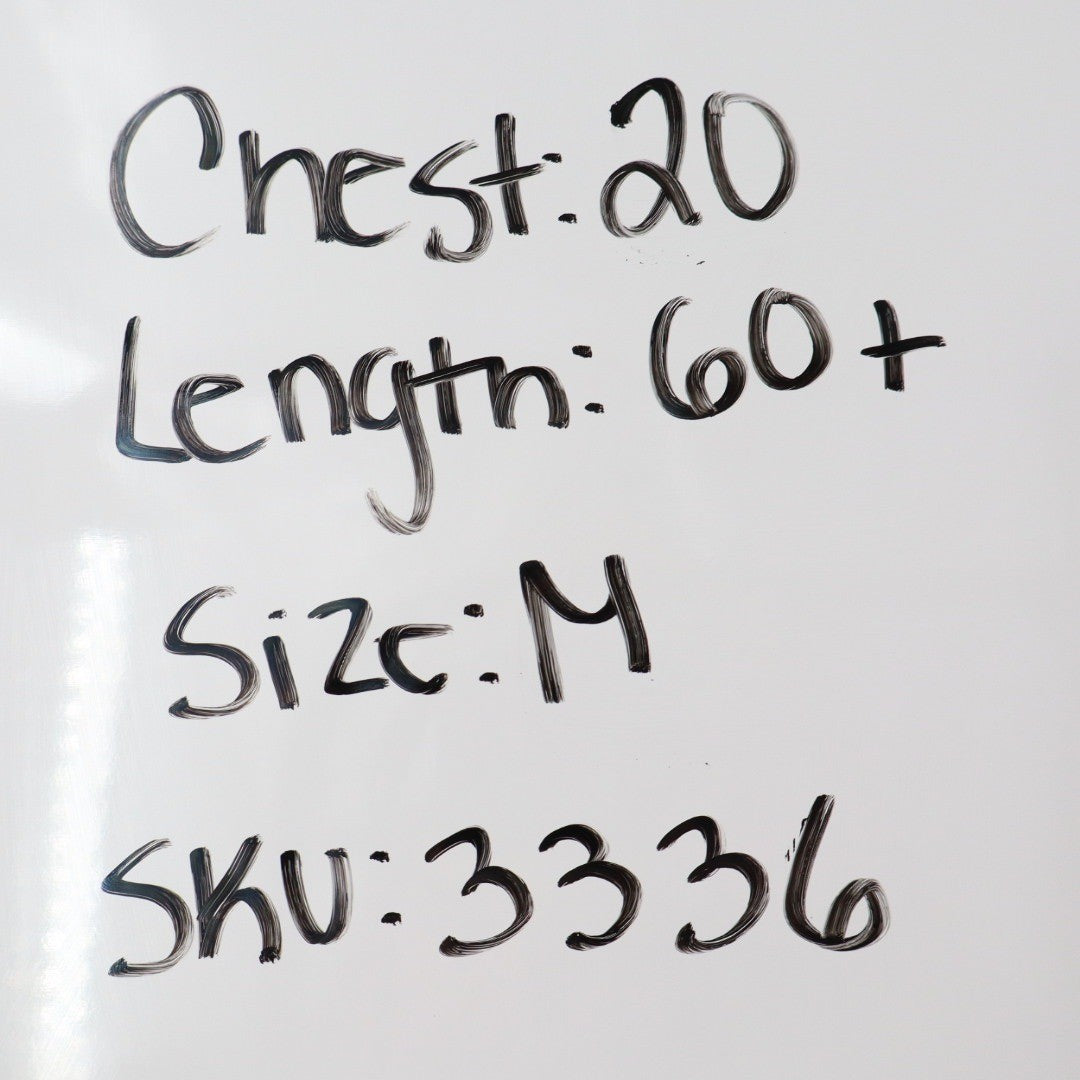 Chest: 20
Length: 60+
Size: M
SKU: 3336